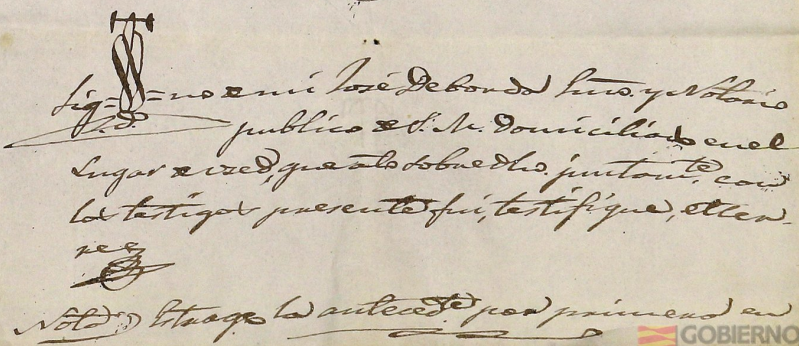 Sig = = no de mi José de bordo Esno. y Notario
público de S. M. domiciliado en el
Lugar de que a lo sobredho. juntamte. con
los testigos presente fui, testifiqué, et cer-
ré
Nota Estrage la antecedte por primero en
GOBIERNO